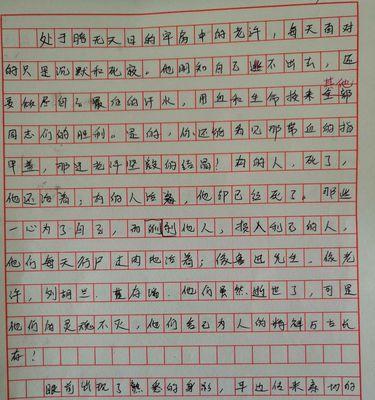 处于暗无天日的牢房中的老许，每天面对
的只是沉默和死寂。他明知自己逃不出去，还
要做尽自己最后的汗水，用血和生命换来全部
其他
同志们的胜利。是的，你还倘为见那带血的指
甲盖，那是老许坚毅的结晶！有的人，死了，
他还活着；有的人活着，他却已经死了。那些
一心为了自己，而剥削他人，损人利己的人，
他们每天行尸走肉地活着；像鲁迅先生、像老
许，刘胡兰、董存瑞，他们虽然逝世了，可是
他们的灵魂不灭，他们舍己为人的精神万古长
存！
眼前出现了熟悉的身影，耳边传来亲切的